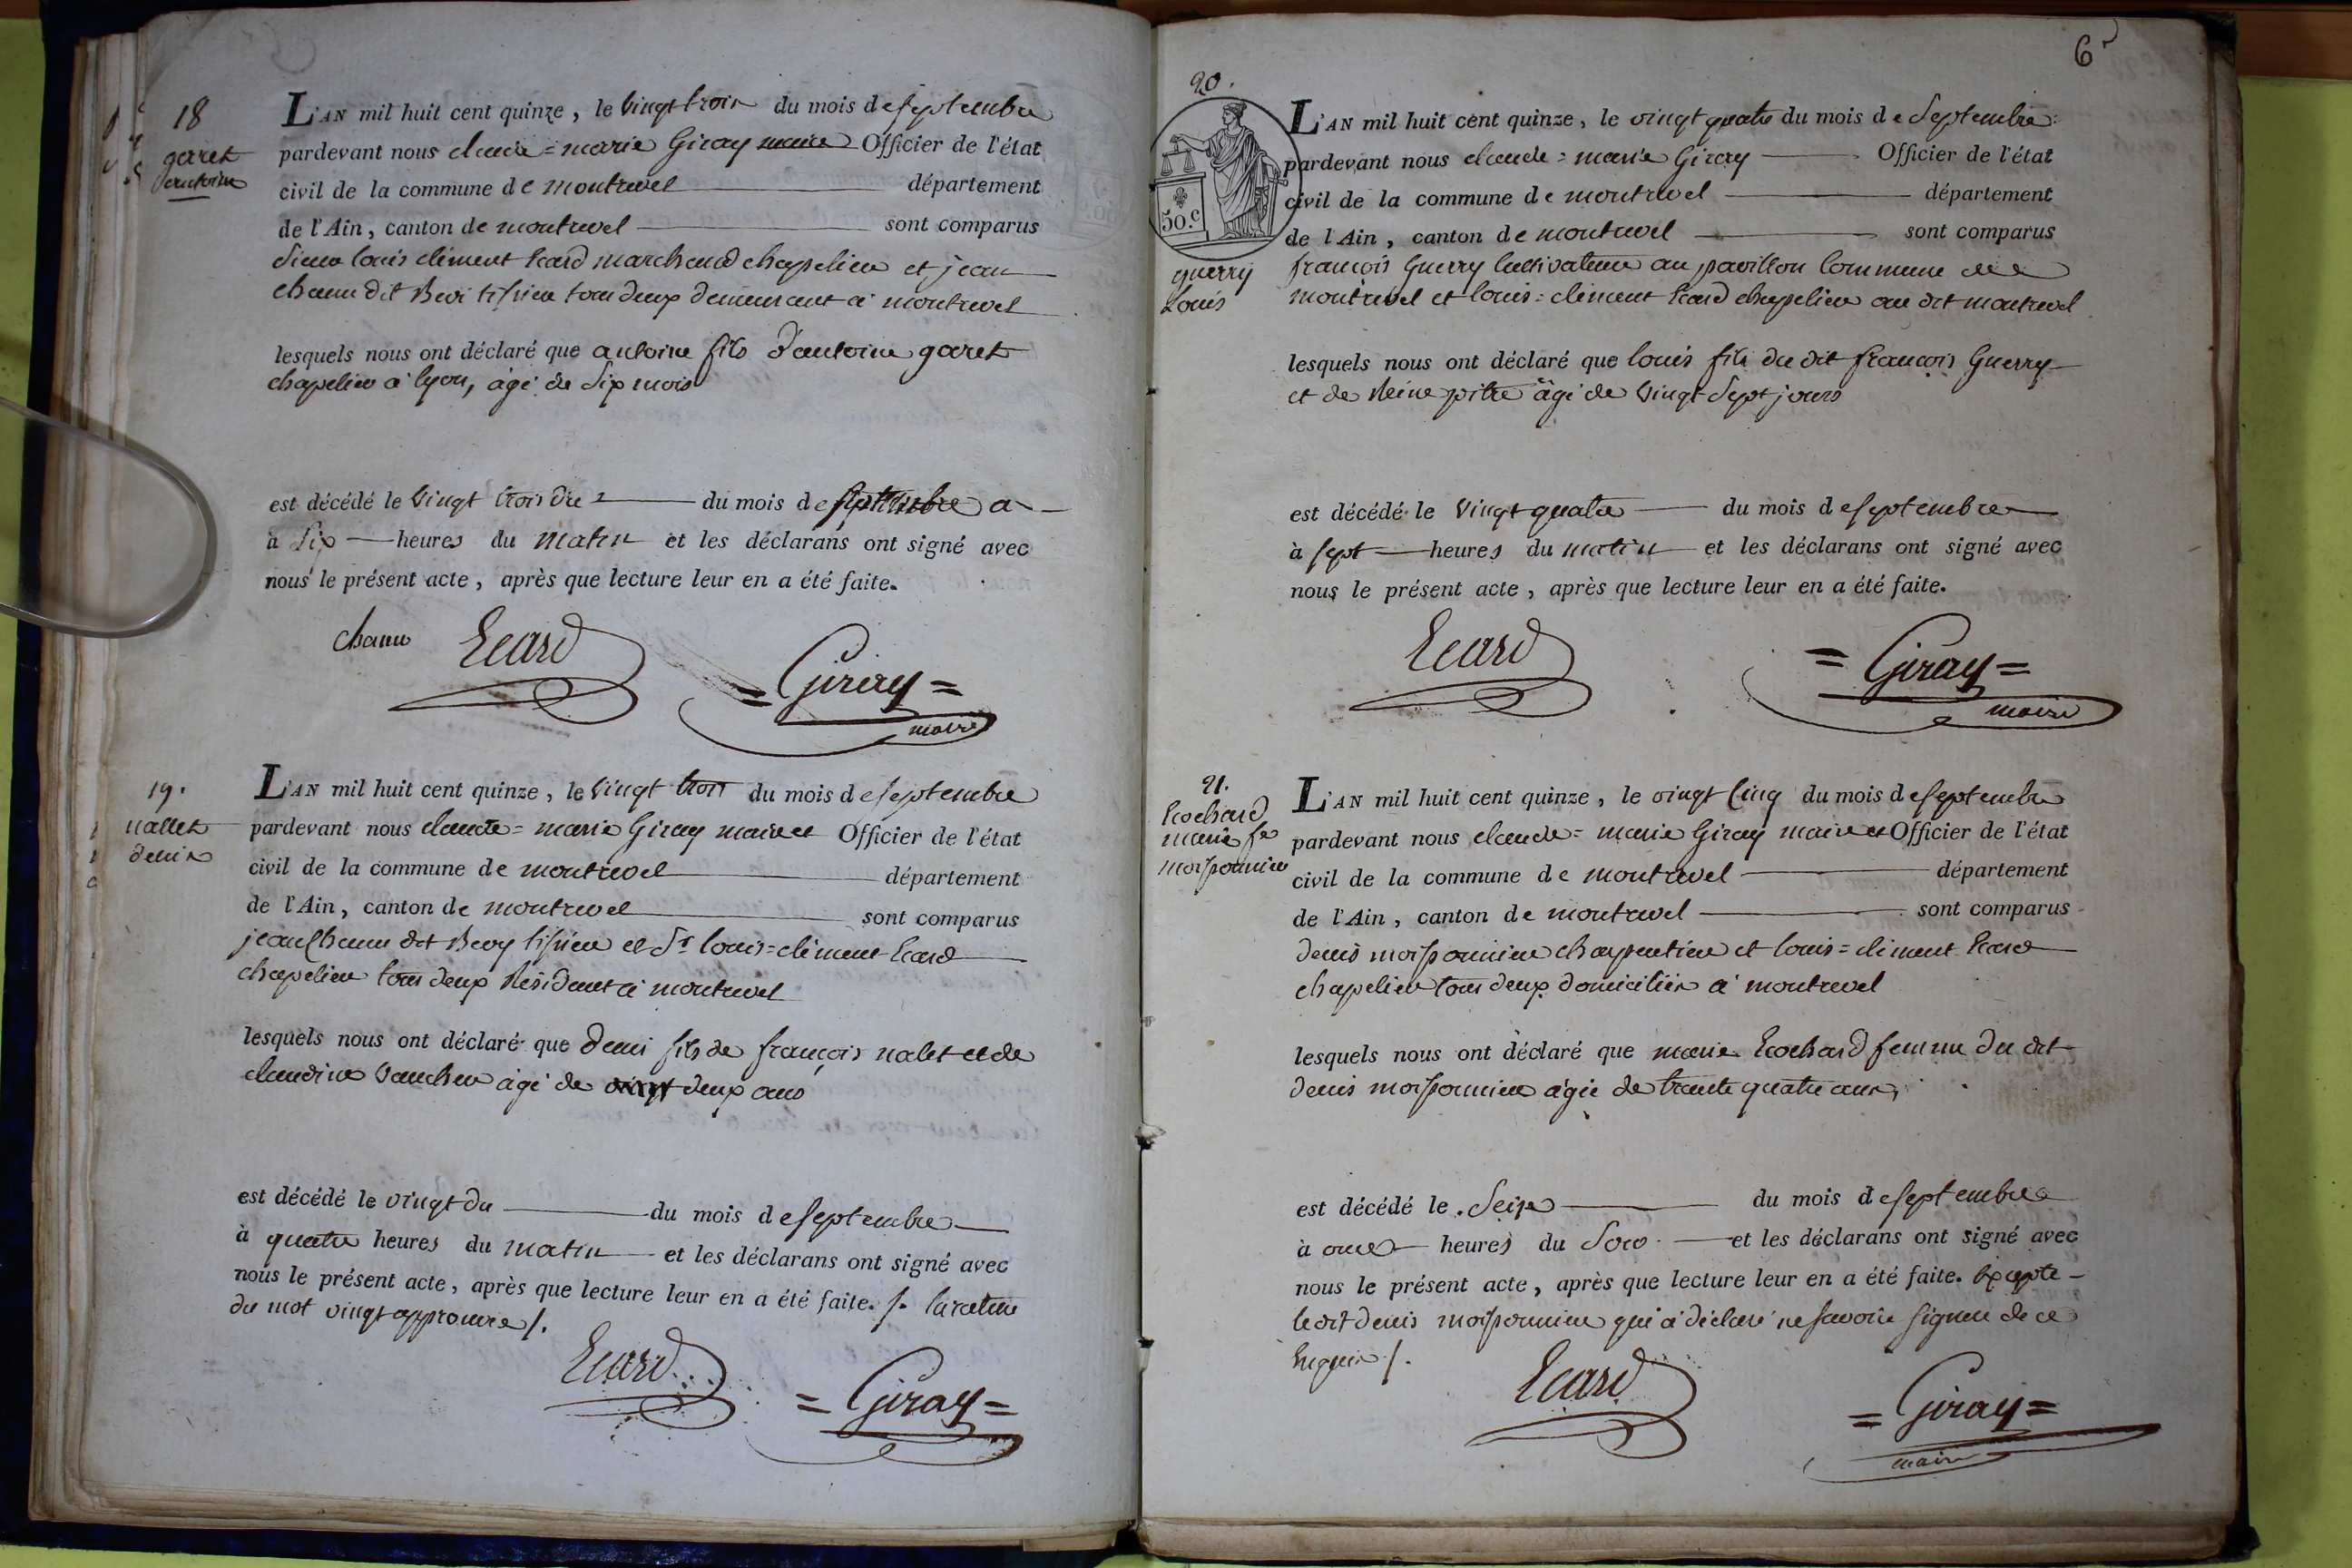 18
garet
antoine
L'AN mil huit cent quinze, le vingt trois du mois de septembre
pardevant nous claude = marie Giray maire Officier de l'état
civil de la commune de montrevel département
de l'Ain, canton de montrevel sont comparus
Sieur louis clément Ecard marchand chapelier et jean
chanu dit tissier tous deux demeurant à montrevel
lesquels nous ont déclaré que antoine fils d'antoine garet
chapelier à lyon, agé de six mois
est décédé le vingt trois du du mois de septembre a
à six heures du matin et les déclarans ont signé avec
nous le présent acte, après que lecture leur en a été faite.
chanu Ecard = Giray =
maire
19.
nallet
denis
L'AN mil huit cent quinze, le vingt trois du mois de septembre
pardevant nous claude = marie Giray maire et Officier de l'état
civil de la commune de montrevel département
de l'Ain, canton de montrevel sont comparus
jean chanu dit tissier et Sr louis = clément Ecard
chapelier tous deux résidant à montrevel
lesquels nous ont déclaré que denis fils de françois nalet et de
claudine agé de vingt deux ans
est décédé le vingt du du mois de septembre
à quatre heures du matin et les déclarans ont signé avec
nous le présent acte, après que lecture leur en a été faite. /. la rature
du mot vingt approuvée /.
Ecard = Giray =
6
20.
50.c
guerry
Louis
L'AN mil huit cent quinze, le vingt quatre du mois de Septembre
pardevant nous claude = marie Giray Officier de l'état
civil de la commune de montrevel département
de l'Ain, canton de montrevel sont comparus
françois Guerry cultivateur au pavillon commune de
montrevel et louis = clément Ecard chapelier au dit montrevel
lesquels nous ont déclaré que louis fils du dit françois Guerry
et de Reine pitre âgé de vingt sept jours
est décédé le vingt quatre du mois de septembre
à sept heures du matin et les déclarans ont signé avec
nous le présent acte, après que lecture leur en a été faite.
Ecard = Giray =
maire
21.
Ecochard
marie fe
moissonnier
L'AN mil huit cent quinze, le vingt cinq du mois de septembre
pardevant nous claude = marie Giray maire et Officier de l'état
civil de la commune de montrevel département
de l'Ain, canton de montrevel sont comparus
denis moissonnier charpentier et louis = clément Ecard
chapelier tous deux domiciliés à montrevel
lesquels nous ont déclaré que marie Ecochard femme du dit
denis moissonnier agée de trente quatre ans
est décédé le Seize du mois de septembre
à onze heures du soir et les déclarans ont signé avec
nous le présent acte, après que lecture leur en a été faite. Excepté
le dit denis moissonnier qui a déclaré ne savoir signer de ce
Enquis /.
Ecard = Giray =
maire